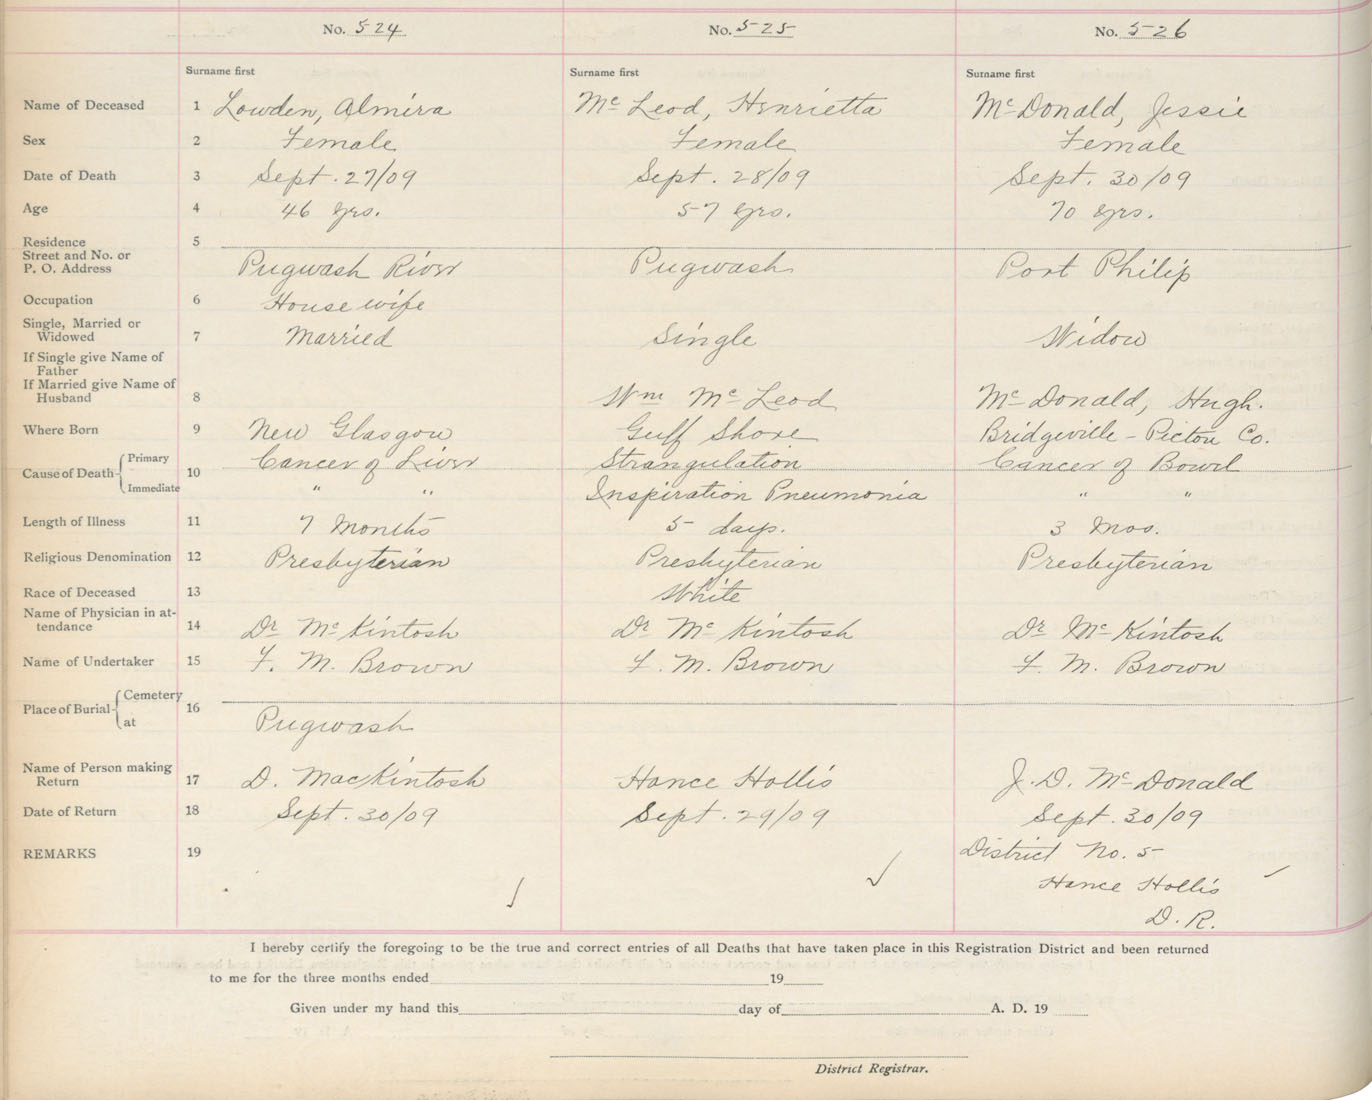 No. 524 No. 525 No. 526
Surname first Surname first Surname first
Name of Deceased 1 Lowden, Almira Mc Leod, Henrietta McDonald, Jessie
Sex 2 Female Female Female
Date of Death 3 Sept. 27/09 Sept. 28/09 Sept. 30/09
Age 4 46 yrs. 57 yrs. 70 yrs.
Residence 5
Street and No. or
P. O. Address Pugwash River Pugwash Port Philip
Occupation 6 Housewife
Single, Married or
Widowed 7 Married Single Widow
If Single give Name of
Father
If Married give Name of
Husband 8 Wm McLeod McDonald, Hugh.
Where Born 9 New Glasgow Gulf Shore Bridgeville - Pictou Co.
Cause of Death 10 Primary Cancer of Liver Strangulation Cancer of Bowel
Immediate " " Inspiration Pneumonia " "
Length of Illness 11 7 Months 5 days. 3 Mos.
Religious Denomination 12 Presbyterian Presbyterian Presbyterian
Race of Deceased 13 White
Name of Physician in at-
tendance 14 Dr McKintosh Dr McKintosh Dr McKintosh
Name of Undertaker 15 F. M. Brown F. M. Brown F. M. Brown
Place of Burial 16 Cemetery
at Pugwash
Name of Person making
Return 17 D. MacKintosh Hance Hollis J. D. McDonald
Date of Return 18 Sept. 30/09 Sept. 29/09 Sept. 30/09
REMARKS 19 District No. 5
Hance Hollis
D. R.
I hereby certify the foregoing to be the true and correct entries of all Deaths that have taken place in this Registration District and been returned
to me for the three months ended 19
Given under my hand this day of A. D. 19
District Registrar.